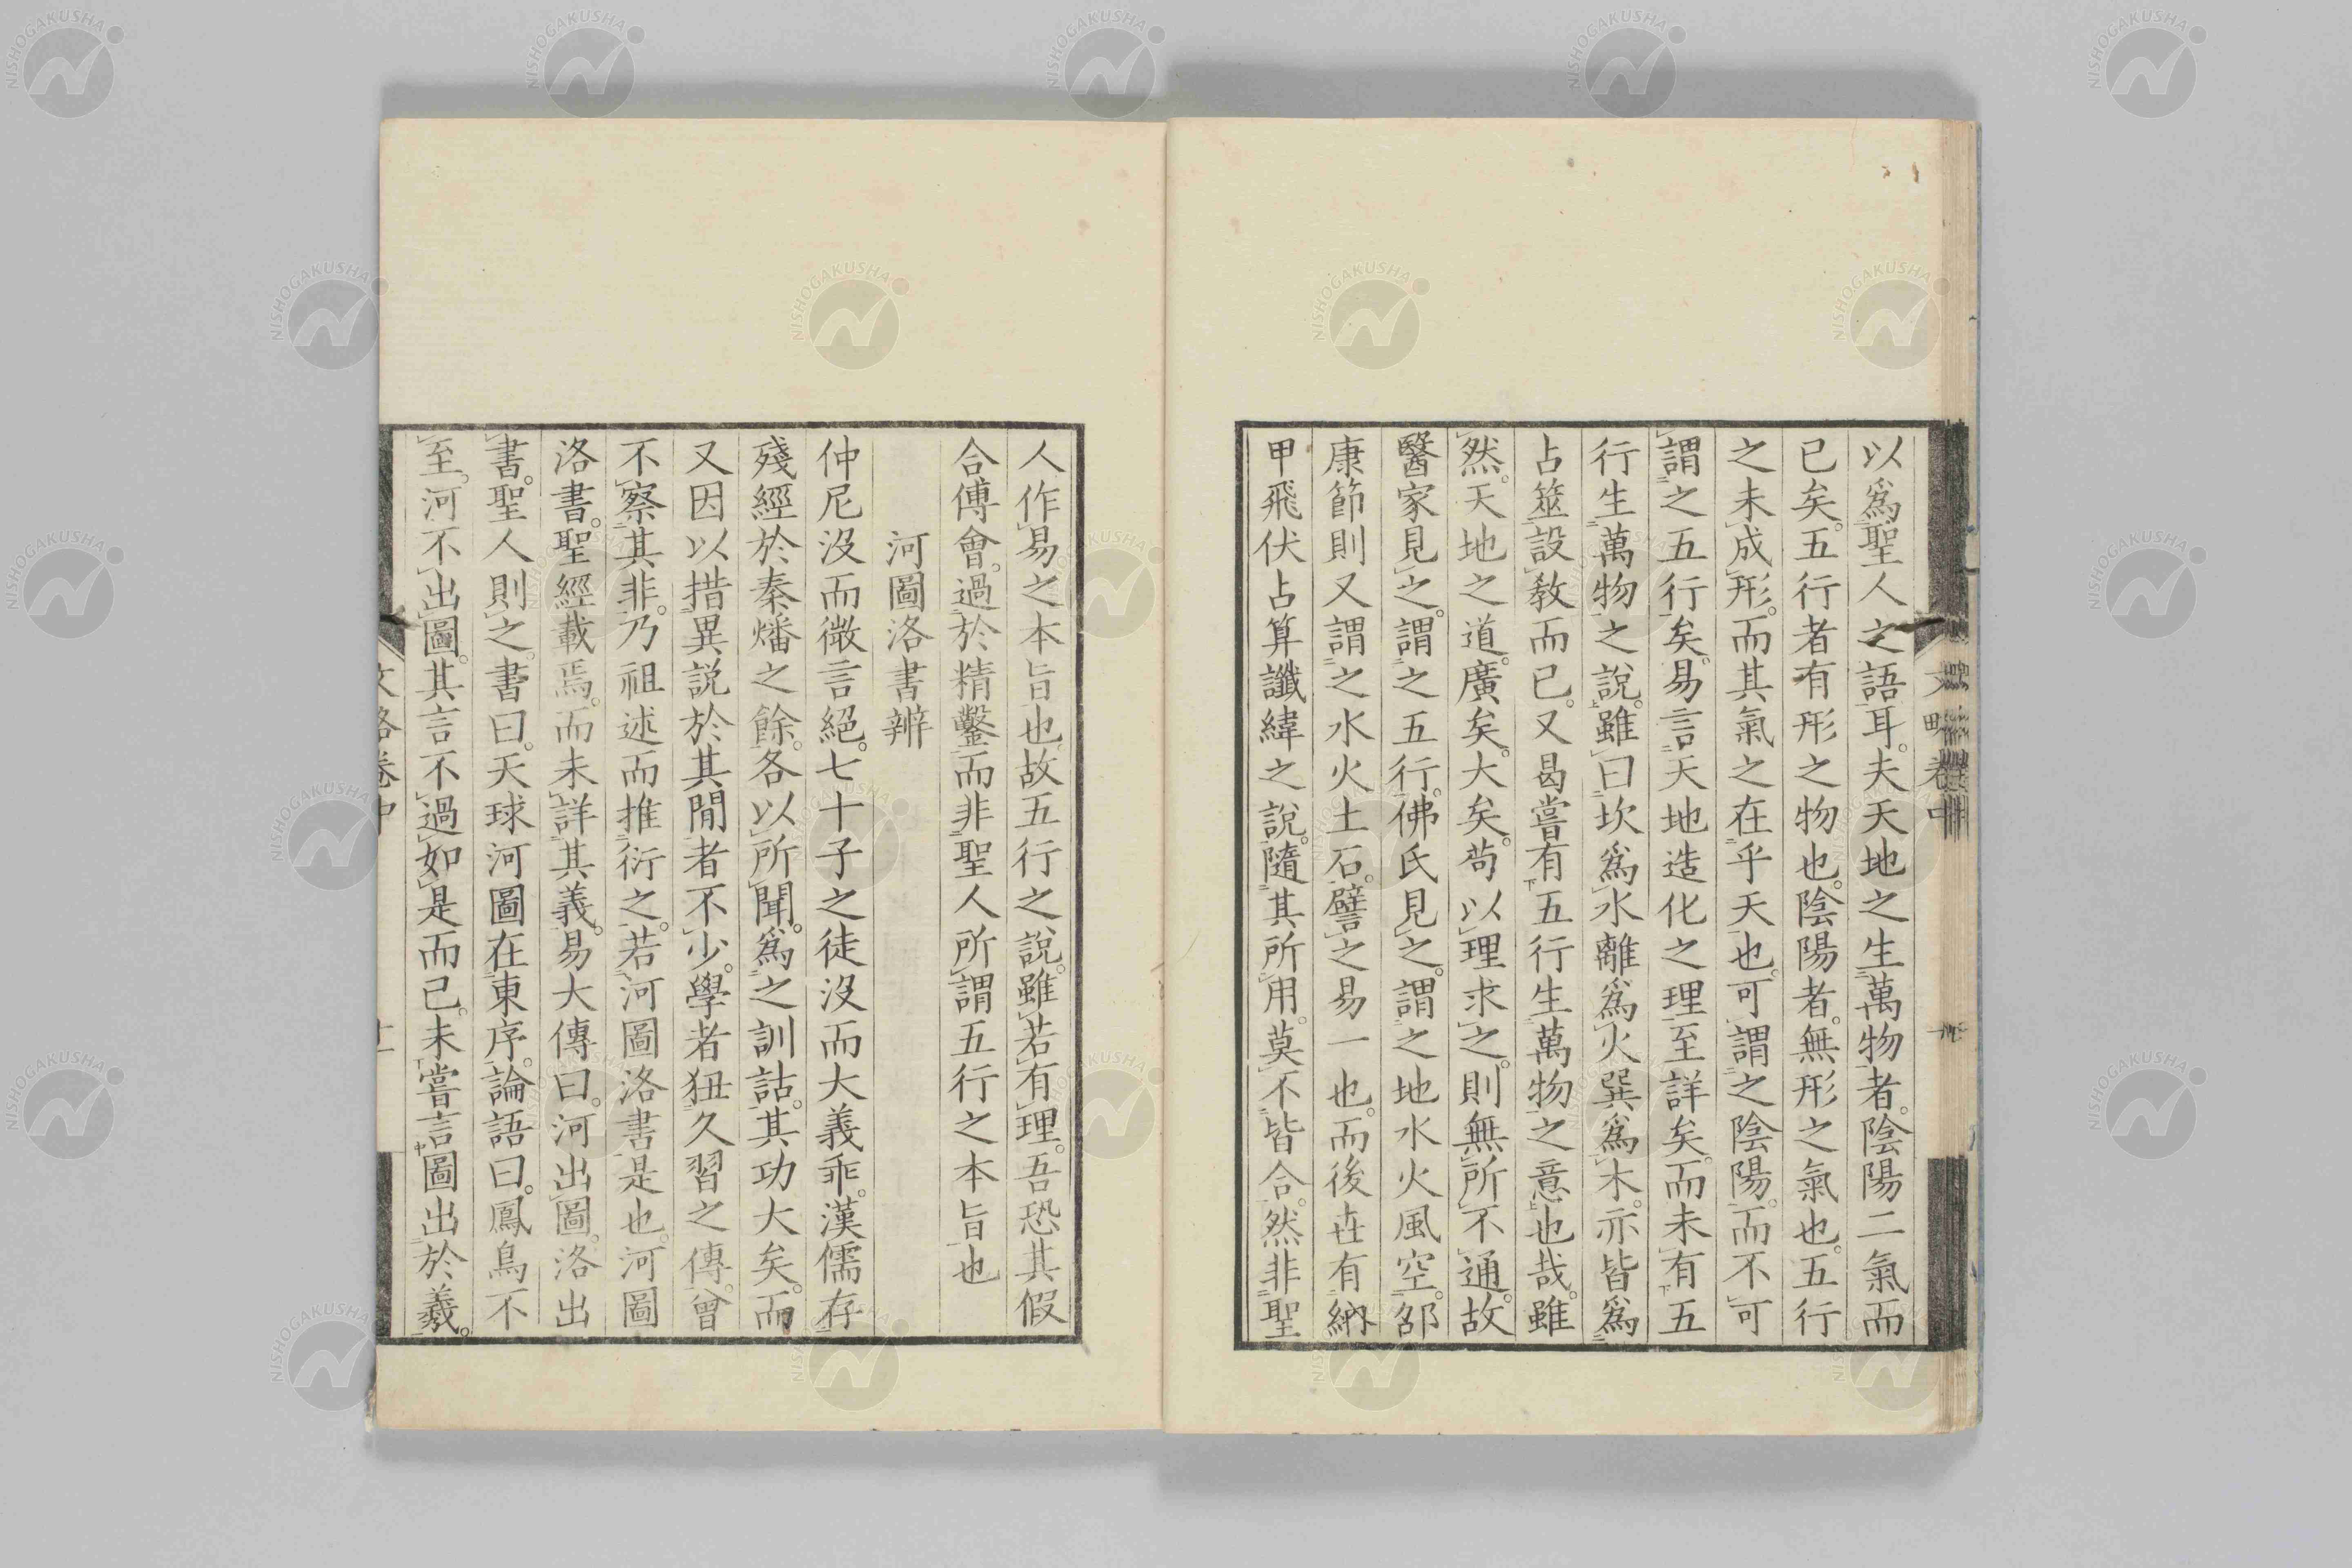 以爲聖人之語耳。夫天地之生萬物者。陰陽二氣而
已矣。五行者有形之物也。陰陽者。無形之氣也。五行
之未成形。而其氣之在乎天也。可謂之陰陽。而不可
謂之五行矣。易言天地造化之理至詳矣。而未有五
行生萬物之說。雖曰坎爲水離爲火巽爲木。亦皆爲
占筮設教而已。又曷嘗有五行生萬物之意也哉。雖
然。天地之道。廣矣。大矣。苟以理求之。則無所不通。故
醫家見之。謂之五行。佛氏見之。謂之地水火風空。邵
康節則又謂之水火土石。譬之易一也。而後世有納
甲飛伏占算讖緯之說。隨其所用。莫不皆合。然非聖
人作易之本旨也。故五行之說。雖若有理。吾恐其假
合傅會。過於精鑿。而非聖人所謂五行之本旨也
河圖洛書辨
仲尼沒而微言絕。七十子之徒沒而大義乖。漢儒存
殘經於秦燔之餘。各以所聞。爲之訓詁。其功大矣。而
又因以措異說於其閒者不少。學者狃久習之傳。曾
不察其非。乃祖述而推衍之。若河圖洛書是也。河圖
洛書。聖經載焉。而未詳其義。易大傳曰。河出圖。洛出
書。聖人則之。書曰。天球河圖在東序。論語曰。鳳鳥不
至。河不出圖。其言不過如是而已。未嘗言圖出於羲。
文略卷中
NISHOGAKUSHA